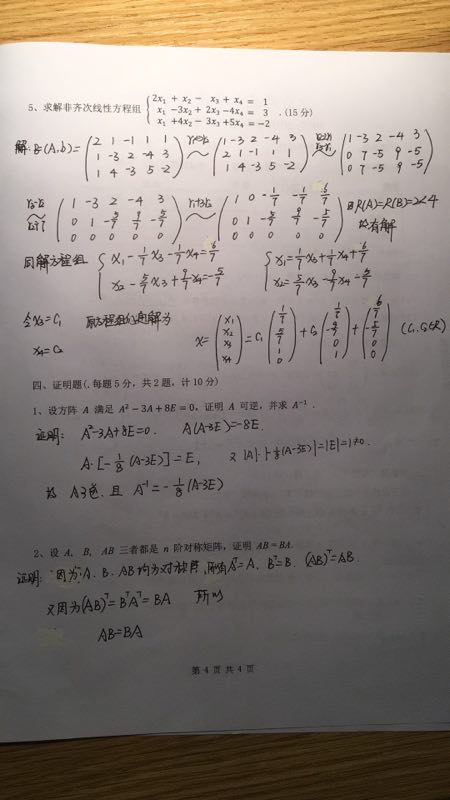 5、求解非齐次线性方程组 { 2x₁ + x₂ − x₃ + x₄ = 1
x₁ −3x₂ + 2x₃ −4x₄ = 3 .(15 分)
x₁ +4x₂ − 3x₃ +5x₄ = −2
解: B=(A,b)= (2 1 -1 1 1 ~ (1 -3 2 -4 3 ~ (1 -3 2 -4 3
1 -3 2 -4 3 2 1 -1 1 1 0 7 -5 9 -5
1 4 -3 5 -2) 1 4 -3 5 -2) 0 7 -5 9 -5)
~ (1 -3 2 -4 3 ~ (1 0 -1/7 -1/7 6/7 R(A)=R(B)=2<4
0 1 -5/7 9/7 -5/7 0 1 -5/7 9/7 -5/7 有解
0 0 0 0 0) 0 0 0 0 0)
同解方程组 { x₁ - 1/7 x₃ - 1/7 x₄ = 6/7 { x₁ = 1/7 x₃ + 1/7 x₄ + 6/7
x₂ - 5/7 x₃ + 9/7 x₄ = -5/7 x₂ = 5/7 x₃ - 9/7 x₄ - 5/7
令 x₃ = C₁ 原方程组的通解为
x₄ = C₂ x = (x₁ x₂ x₃ x₄) = C₁ (1/7 5/7 1 0) + C₂ (1/7 -9/7 0 1) + (6/7 -5/7 0 0) (C₁, C₂∈R)
四、证明题(.每题 5 分，共 2 题，计 10 分)
1、设方阵 A 满足 A² − 3A + 8E = 0，证明 A 可逆，并求 A⁻¹ .
证明: A²-3A+8E=0. A(A-3E)=-8E.
A·[-1/8 (A-3E)]=E, 又 |A|·|-1/8 (A-3E)|=|E|=1≠0.
故 A可逆. 且 A⁻¹=-1/8 (A-3E)
2、设 A, B, AB 三者都是 n 阶对称矩阵，证明 AB = BA.
证明: 因为 A、B、AB 均为对称阵, 所有 Aᵀ=A、Bᵀ=B. (AB)ᵀ=AB.
又因为 (AB)ᵀ=BᵀAᵀ=BA 所以
AB=BA
第 4 页 共 4 页